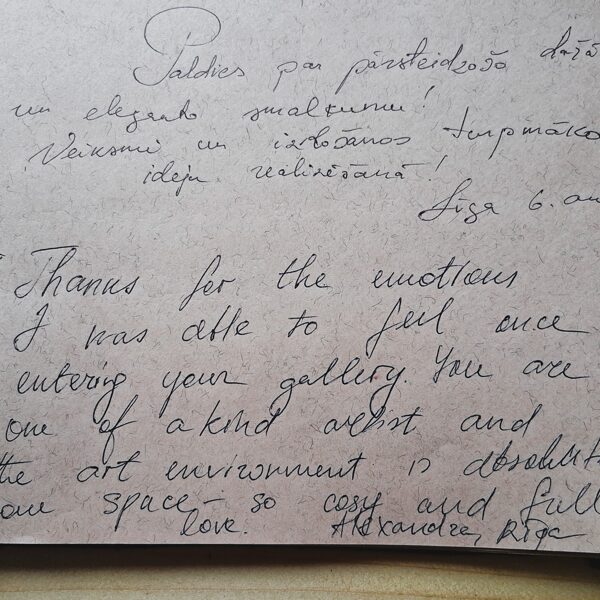 Paldies par pārsteidzošo
un eleganto smalkumu!
Veiksmi un izdošanos turpmāko
ideju realizēšanā!
Līga 6.
Thanks for the emotions
I was able to feel once
entering your gallery. You are
one of a kind artist and
the art environment is absolute
space - so cosy and full
love. Alexandra, Rīga